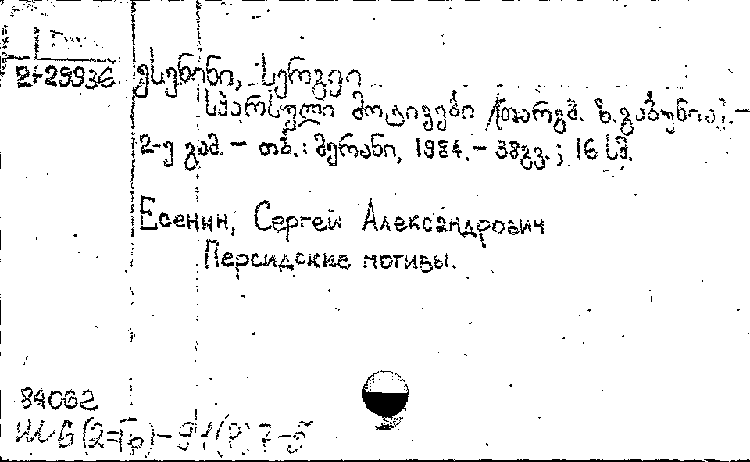 2-29936 ესენინი, სერგეი
სპარსული მოტივები /თარგმ. ზ. გაბუნია/.-
2-ე გამ. - თბ.: მერანი, 1984. - 38გვ.; 16 სმ.
Есенин, Сергей Александрович
Персидские мотивы.
84062